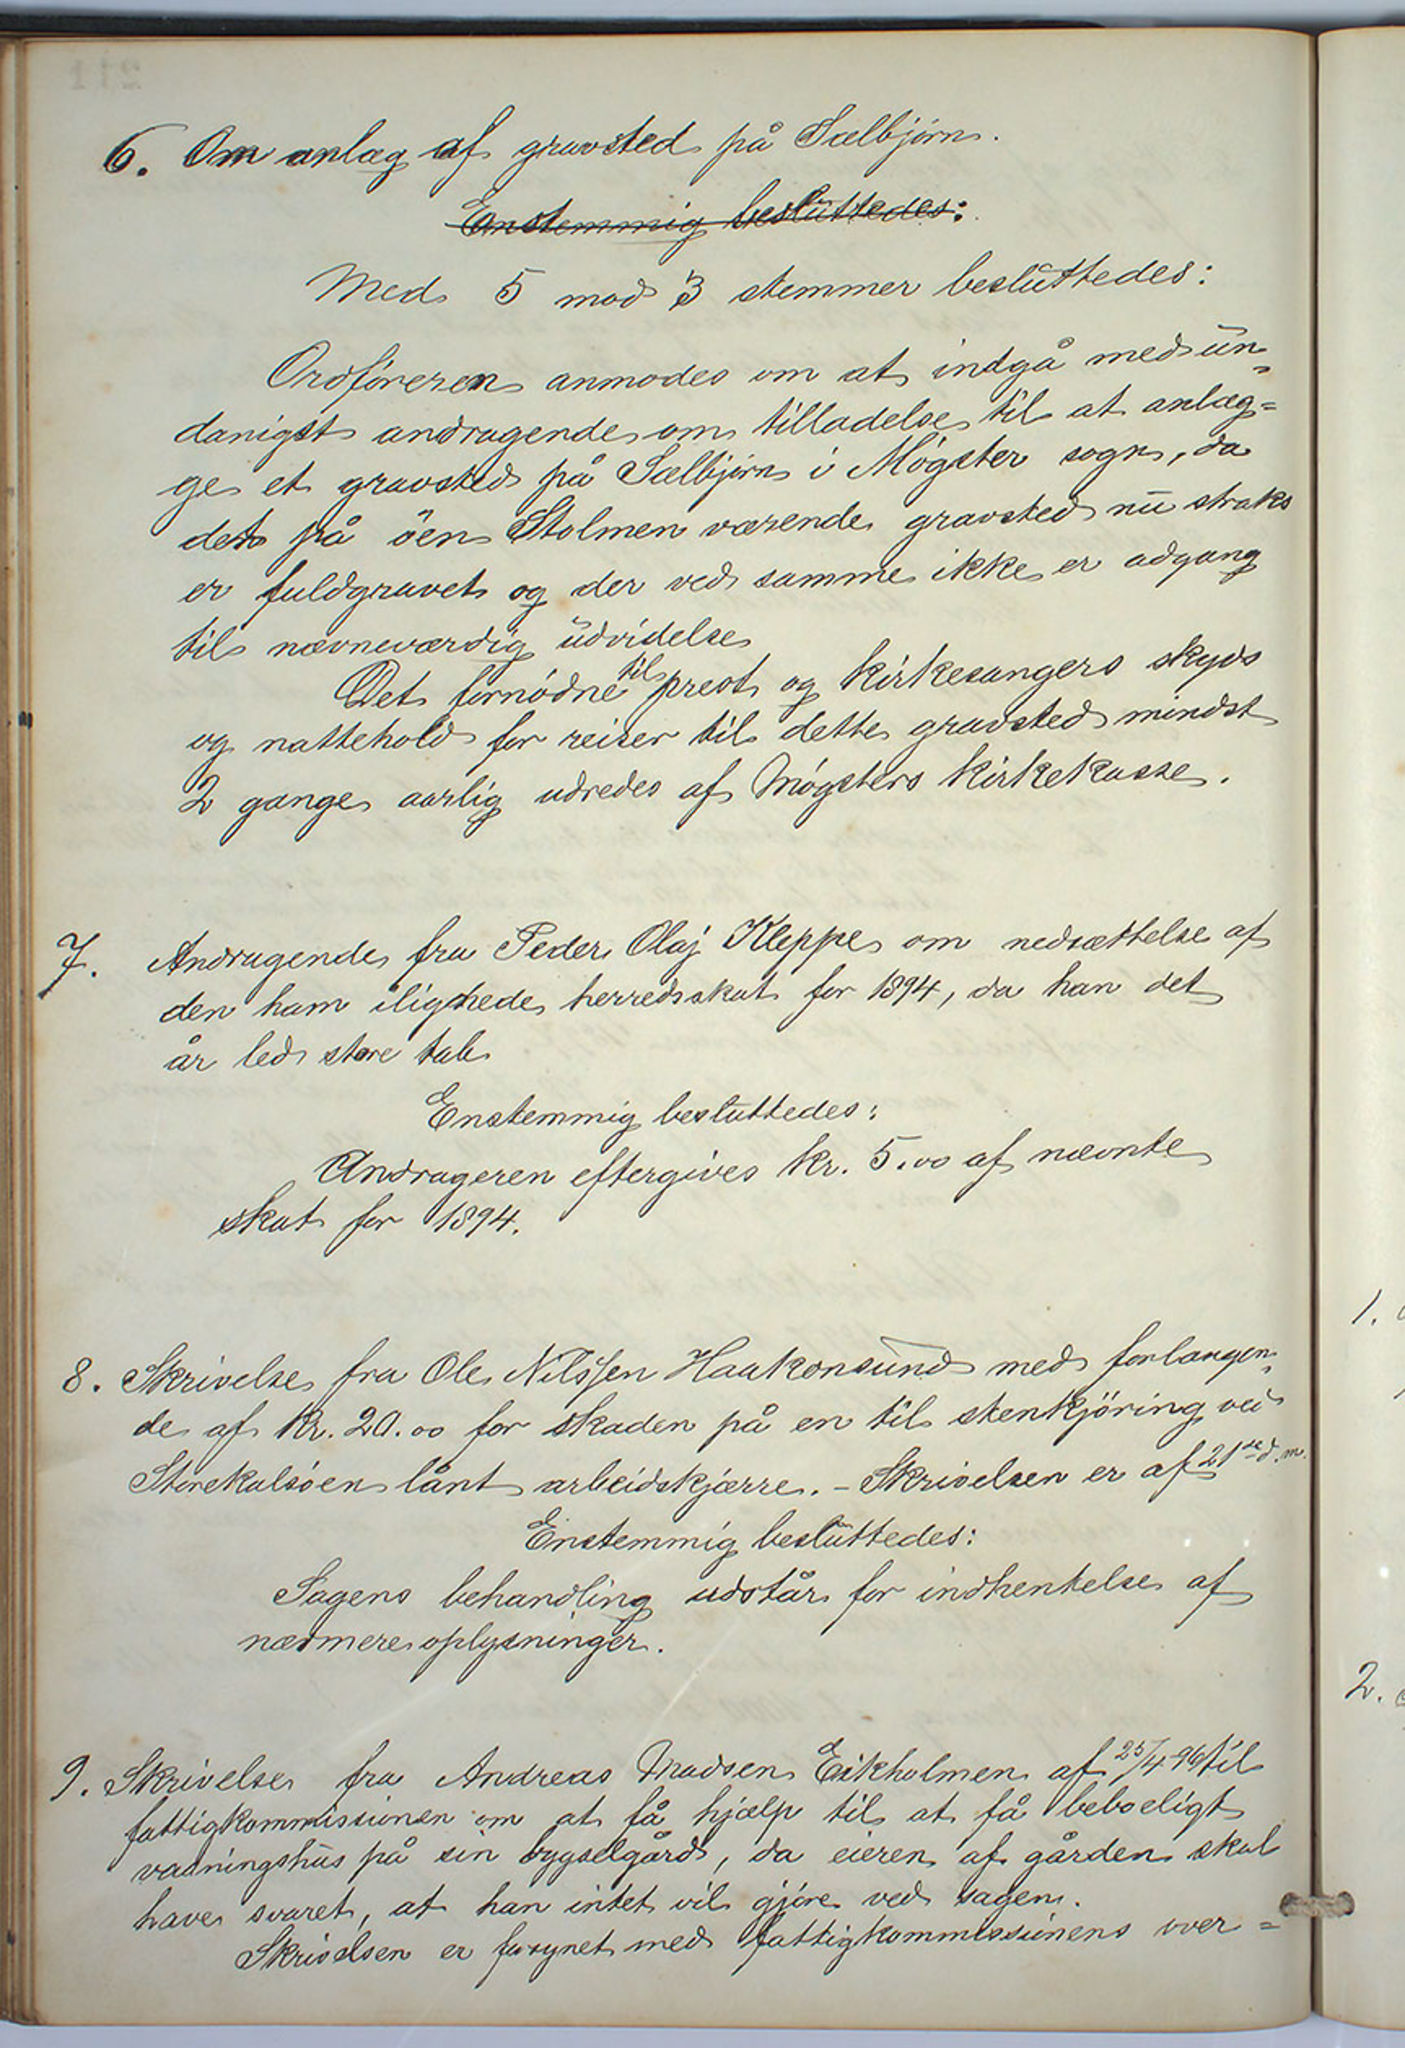 6. Om anlæg af gravsted på Sælbjørn.
Enstemmig besluttedes:
Med 5 mod 3 stemmer besluttedes:
Ordføreren anmodes om at indgå med un-
danigst andragende om tilladelse til at anlæg=
ge et gravsted på Sælbjørn i Møgster sogn, da
det på öen Stolmen værende gravsted nu straks
er fuldgravet og der ved samme ikke er adgang
til nævneværdig udvidelse
Det fornødne til prest og kirkesangers skyds
og nattehold for reiser til dette gravsted mindst
2 gange aarlig udredes af Møgsters kirkekasse.
7. Andragende fra Peder Olaj Kleppe om nedsættelse af
den ham ilignede herredsskat for 1894, da han det
år led store tab
Enstemmig besluttedes:
Andrageren eftergives kr. 5.00 af nævnte
skat for 1894.
8. Skrivelse fra Ole Nilssen Haakonsund med forlangen-
de af kr. 20.00 for skaden på en til stenkjöring ved
Storekalsöen lånt arbeidskjærre. - Skrivelsen er af 21de d.m.
Enstemmig besluttedes:
Sagens behandling udstår for indhentelse af
nærmere oplysninger.
9. Skrivelse fra Andreas Madsen Eikholmen af 25/4-96 til
fattigkommissionen om at få hjælp til at få beboeligt
vaaningshus på sin bygselgård, da eieren af gården skal
have svaret, at han intet vil gjøre ved sagen.
Skrivelsen er forsynet med fattigkommissionens over=
1.
2.
211